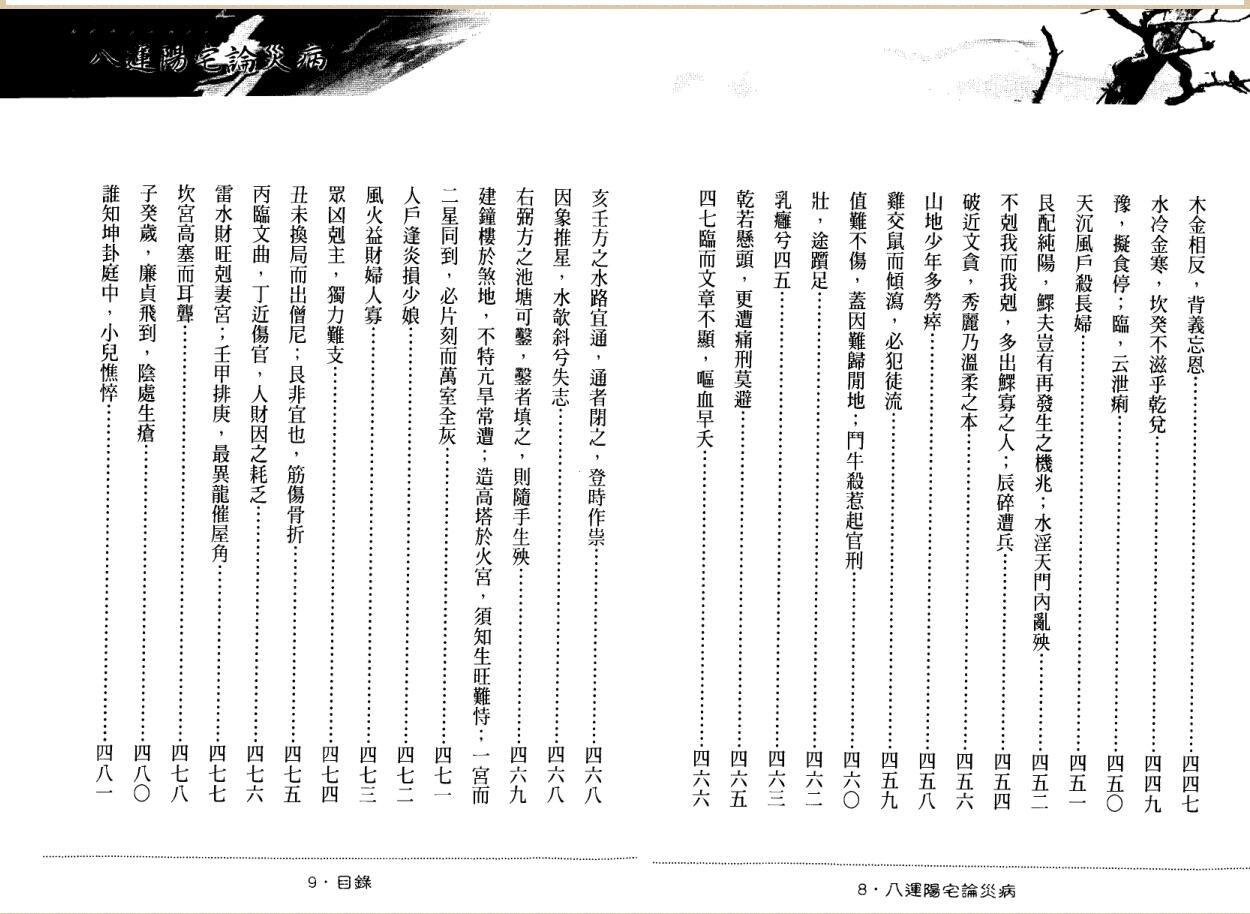 木金相反，背義忘恩……四四七
水冷金寒，坎癸不滋乎乾兌……四四九
豫，擬食停；臨，云泄痢……四五〇
天沉風戶殺長婦……四五一
艮配純陽，鰥夫豈有再發生之機兆；水淫天門內亂殃……四五二
不剋我而我剋，多出鰥寡之人；辰碎遭兵……四五四
破近文貪，秀麗乃溫柔之本……四五六
山地少年多勞瘁……四五八
雞交鼠而傾瀉，必犯徒流……四五九
值難不傷，蓋因難歸閒地；鬥牛殺惹起官刑……四六〇
壯，途躓足……四六二
乳癰兮四五……四六三
乾若懸頭，更遭痛刑莫避……四六五
四七臨而文章不顯，嘔血早夭……四六六
8．八運陽宅論災病
八運陽宅論災病
亥壬方之水路宜通，通者閉之，登時作祟……四六八
因象推星，水欹斜兮失志……四六八
右弼方之池塘可鑿，鑿者填之，則隨手生殃……四六九
建鐘樓於煞地，不特亢旱常遭；造高塔於火宮，須知生旺難恃，一宮而
二星同到，必片刻而萬室全灰……四七一
人戶逢炎損少娘……四七二
風火益財婦人寡……四七三
眾凶剋主，獨力難支……四七四
丑未換局而出僧尼；艮非宜也，筋傷骨折……四七五
丙臨文曲，丁近傷官，人財因之耗乏……四七六
雷水財旺剋妻宮；壬甲排庚，最異龍催屋角……四七七
坎宮高塞而耳聾……四七八
子癸歲，廉貞飛到，陰處生瘡……四八〇
誰知坤卦庭中，小兒憔悴……四八一
9．目錄